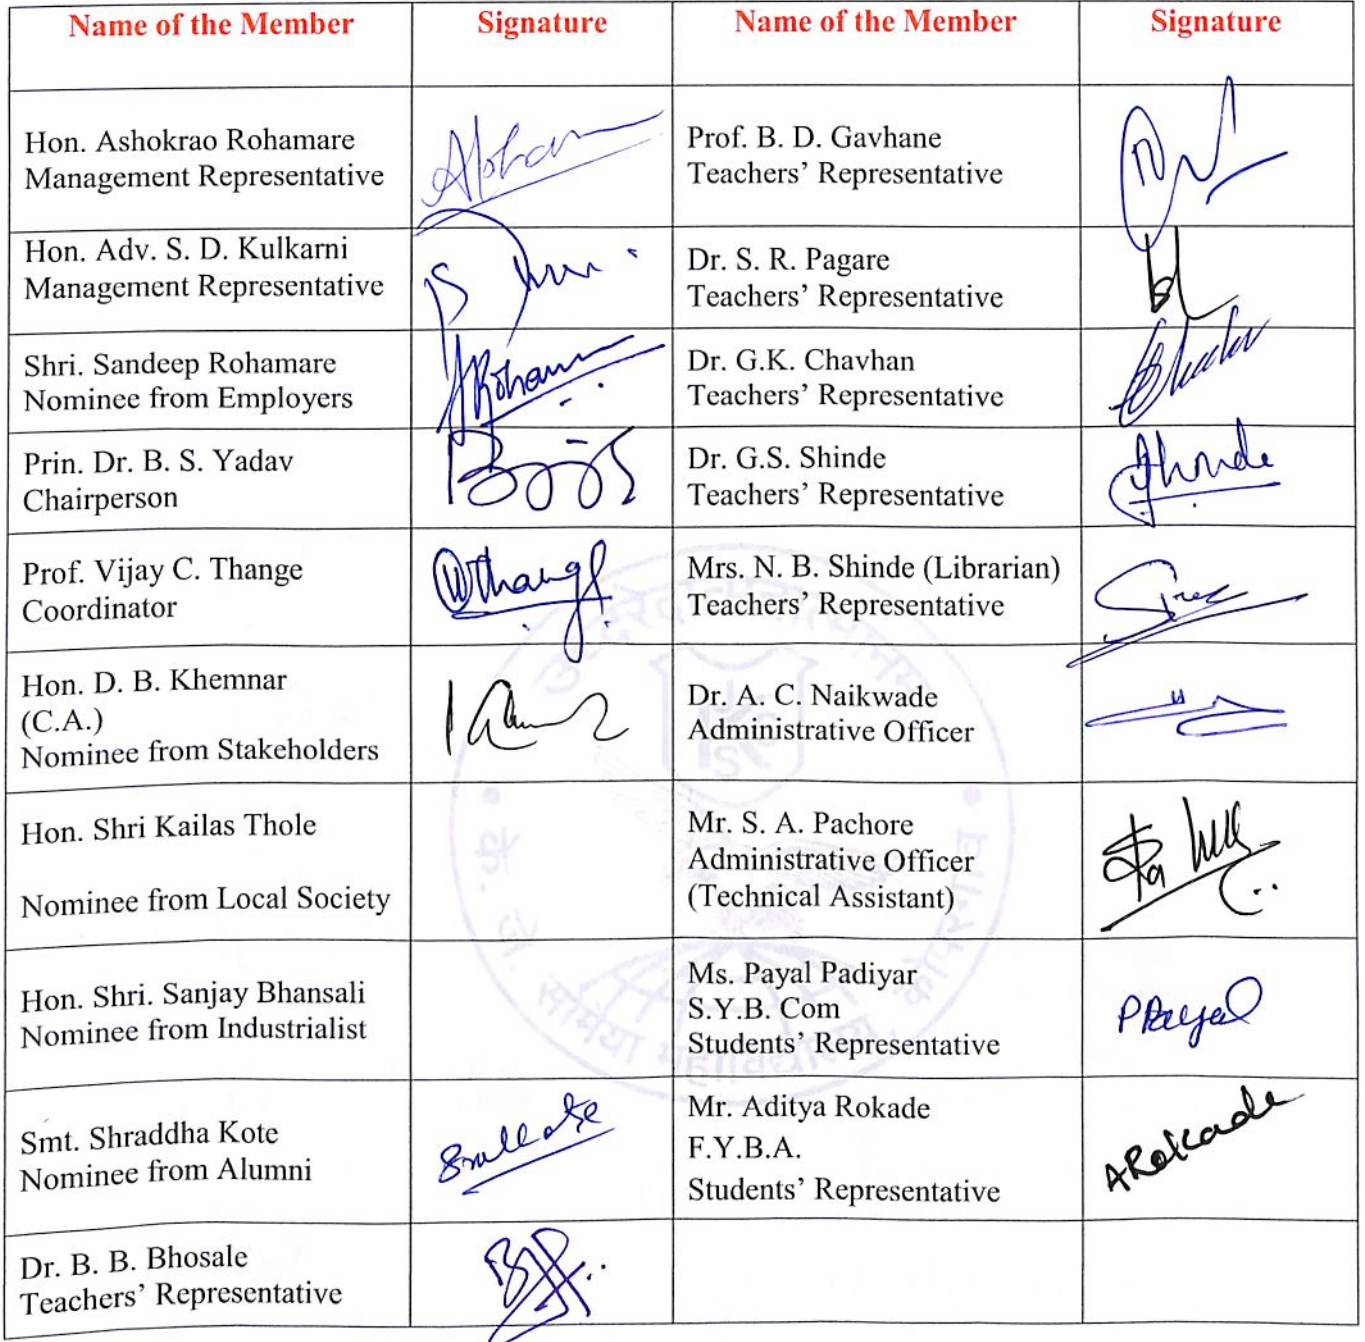 Name of the Member
Signature
Name of the Member
Signature
Hon. Ashokrao Rohamare
Management Representative
Prof. B. D. Gavhane
Teachers’ Representative
Hon. Adv. S. D. Kulkarni
Management Representative
Dr. S. R. Pagare
Teachers’ Representative
Shri. Sandeep Rohamare
Nominee from Employers
Rohamare
Dr. G.K. Chavhan
Teachers’ Representative
Prin. Dr. B. S. Yadav
Chairperson
Dr. G.S. Shinde
Teachers’ Representative
Shinde
Prof. Vijay C. Thange
Coordinator
Thange
Mrs. N. B. Shinde (Librarian)
Teachers’ Representative
Hon. D. B. Khemnar
(C.A.)
Nominee from Stakeholders
Dr. A. C. Naikwade
Administrative Officer
Hon. Shri Kailas Thole
Nominee from Local Society
Mr. S. A. Pachore
Administrative Officer
(Technical Assistant)
Hon. Shri. Sanjay Bhansali
Nominee from Industrialist
Ms. Payal Padiyar
S.Y.B. Com
Students’ Representative
PPayal
Smt. Shraddha Kote
Nominee from Alumni
Mr. Aditya Rokade
F.Y.B.A.
Students’ Representative
ARokade
Dr. B. B. Bhosale
Teachers’ Representative
के. जे. सोमैया महाविद्यालय, कोपरगाव